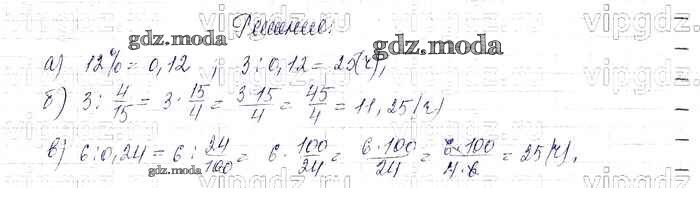 Решение:
gdz.moda
а) 12% = 0,12 ; 3 : 0,12 = 25(г),
gdz.moda
б) 3 : 4/15 = 3 · 15/4 = 3·15/4 = 45/4 = 11,25(г)
в) 6 : 0,24 = 6 : 24/100 = 6 · 100/24 = 6·100/24 = 6·100/4·6 = 25(г).
gdz.moda
vipgdz.ru